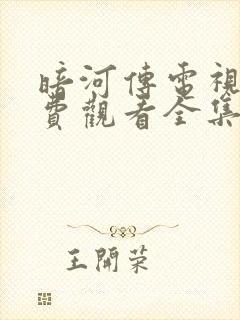 暗河傳電視
費觀看全集
王開荣